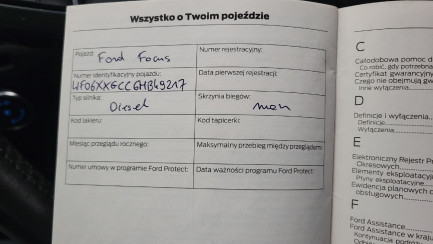 Wszystko o Twoim pojeździe
Pojazd: Ford Focus
Numer rejestracyjny:
Numer identyfikacyjny pojazdu:
Data pierwszej rejestracji:
Typ silnika: Diesel
Skrzynia biegów: man
Kod lakieru:
Kod tapicerki:
Miesiąc przeglądu rocznego:
Maksymalny przebieg między przeglądami:
Numer umowy w programie Ford Protect:
Data ważności programu Ford Protect:
C
Całodobowa pomoc d
Co robić, gdy potrzebna
Certyfikat gwarancyjny
Czego nie obejmują gw
Inne wyłączenia
D
Definicje i wyłączenia
Definicje
Wyłączenia
E
Elektroniczny Rejestr Pr
Okresowych
Elementy eksploatacyj
Płyny eksploatacyjne
Ewidencja planowych o
obsługowych
F
Ford Assistance
Ford Assistance w kraju
Kontynuacja podróż